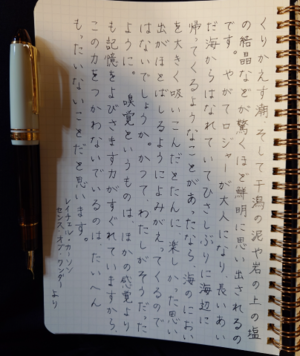 くりかえす潮、そして干潟の泥や岩の上の塩
の結晶などが驚くほど鮮明に思い出されるの
です。やがてロジャーが大人になり長いあい
だ海からはなれていてひさしぶりに海辺に
帰ってくるようなことがあったなら海のにおい
を大きく吸いこんだとたんに、楽しかった思い
出がほとばしるようによみがえってくるので
はないでしょうか。かつて、わたしがそうだった
ように。嗅覚というものは、ほかの感覚より
も記憶をよびさます力がすぐれていますから
この力をつかわないでいるのは、たいへん
もったいないことだと思います。
レイチェル・カーソン
センス・オブ・ワンダー
より